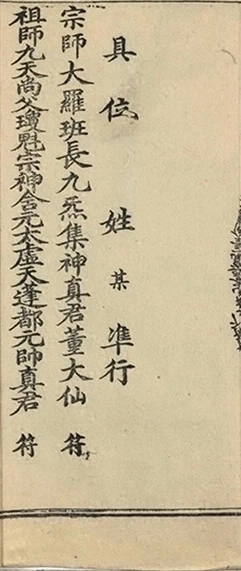 具位 姓 某 准行
宗師大羅班長九炁集神真君董大仙 符
祖師九天尚父瓊魁宗神含元太虛天蓬都元帥真君 符